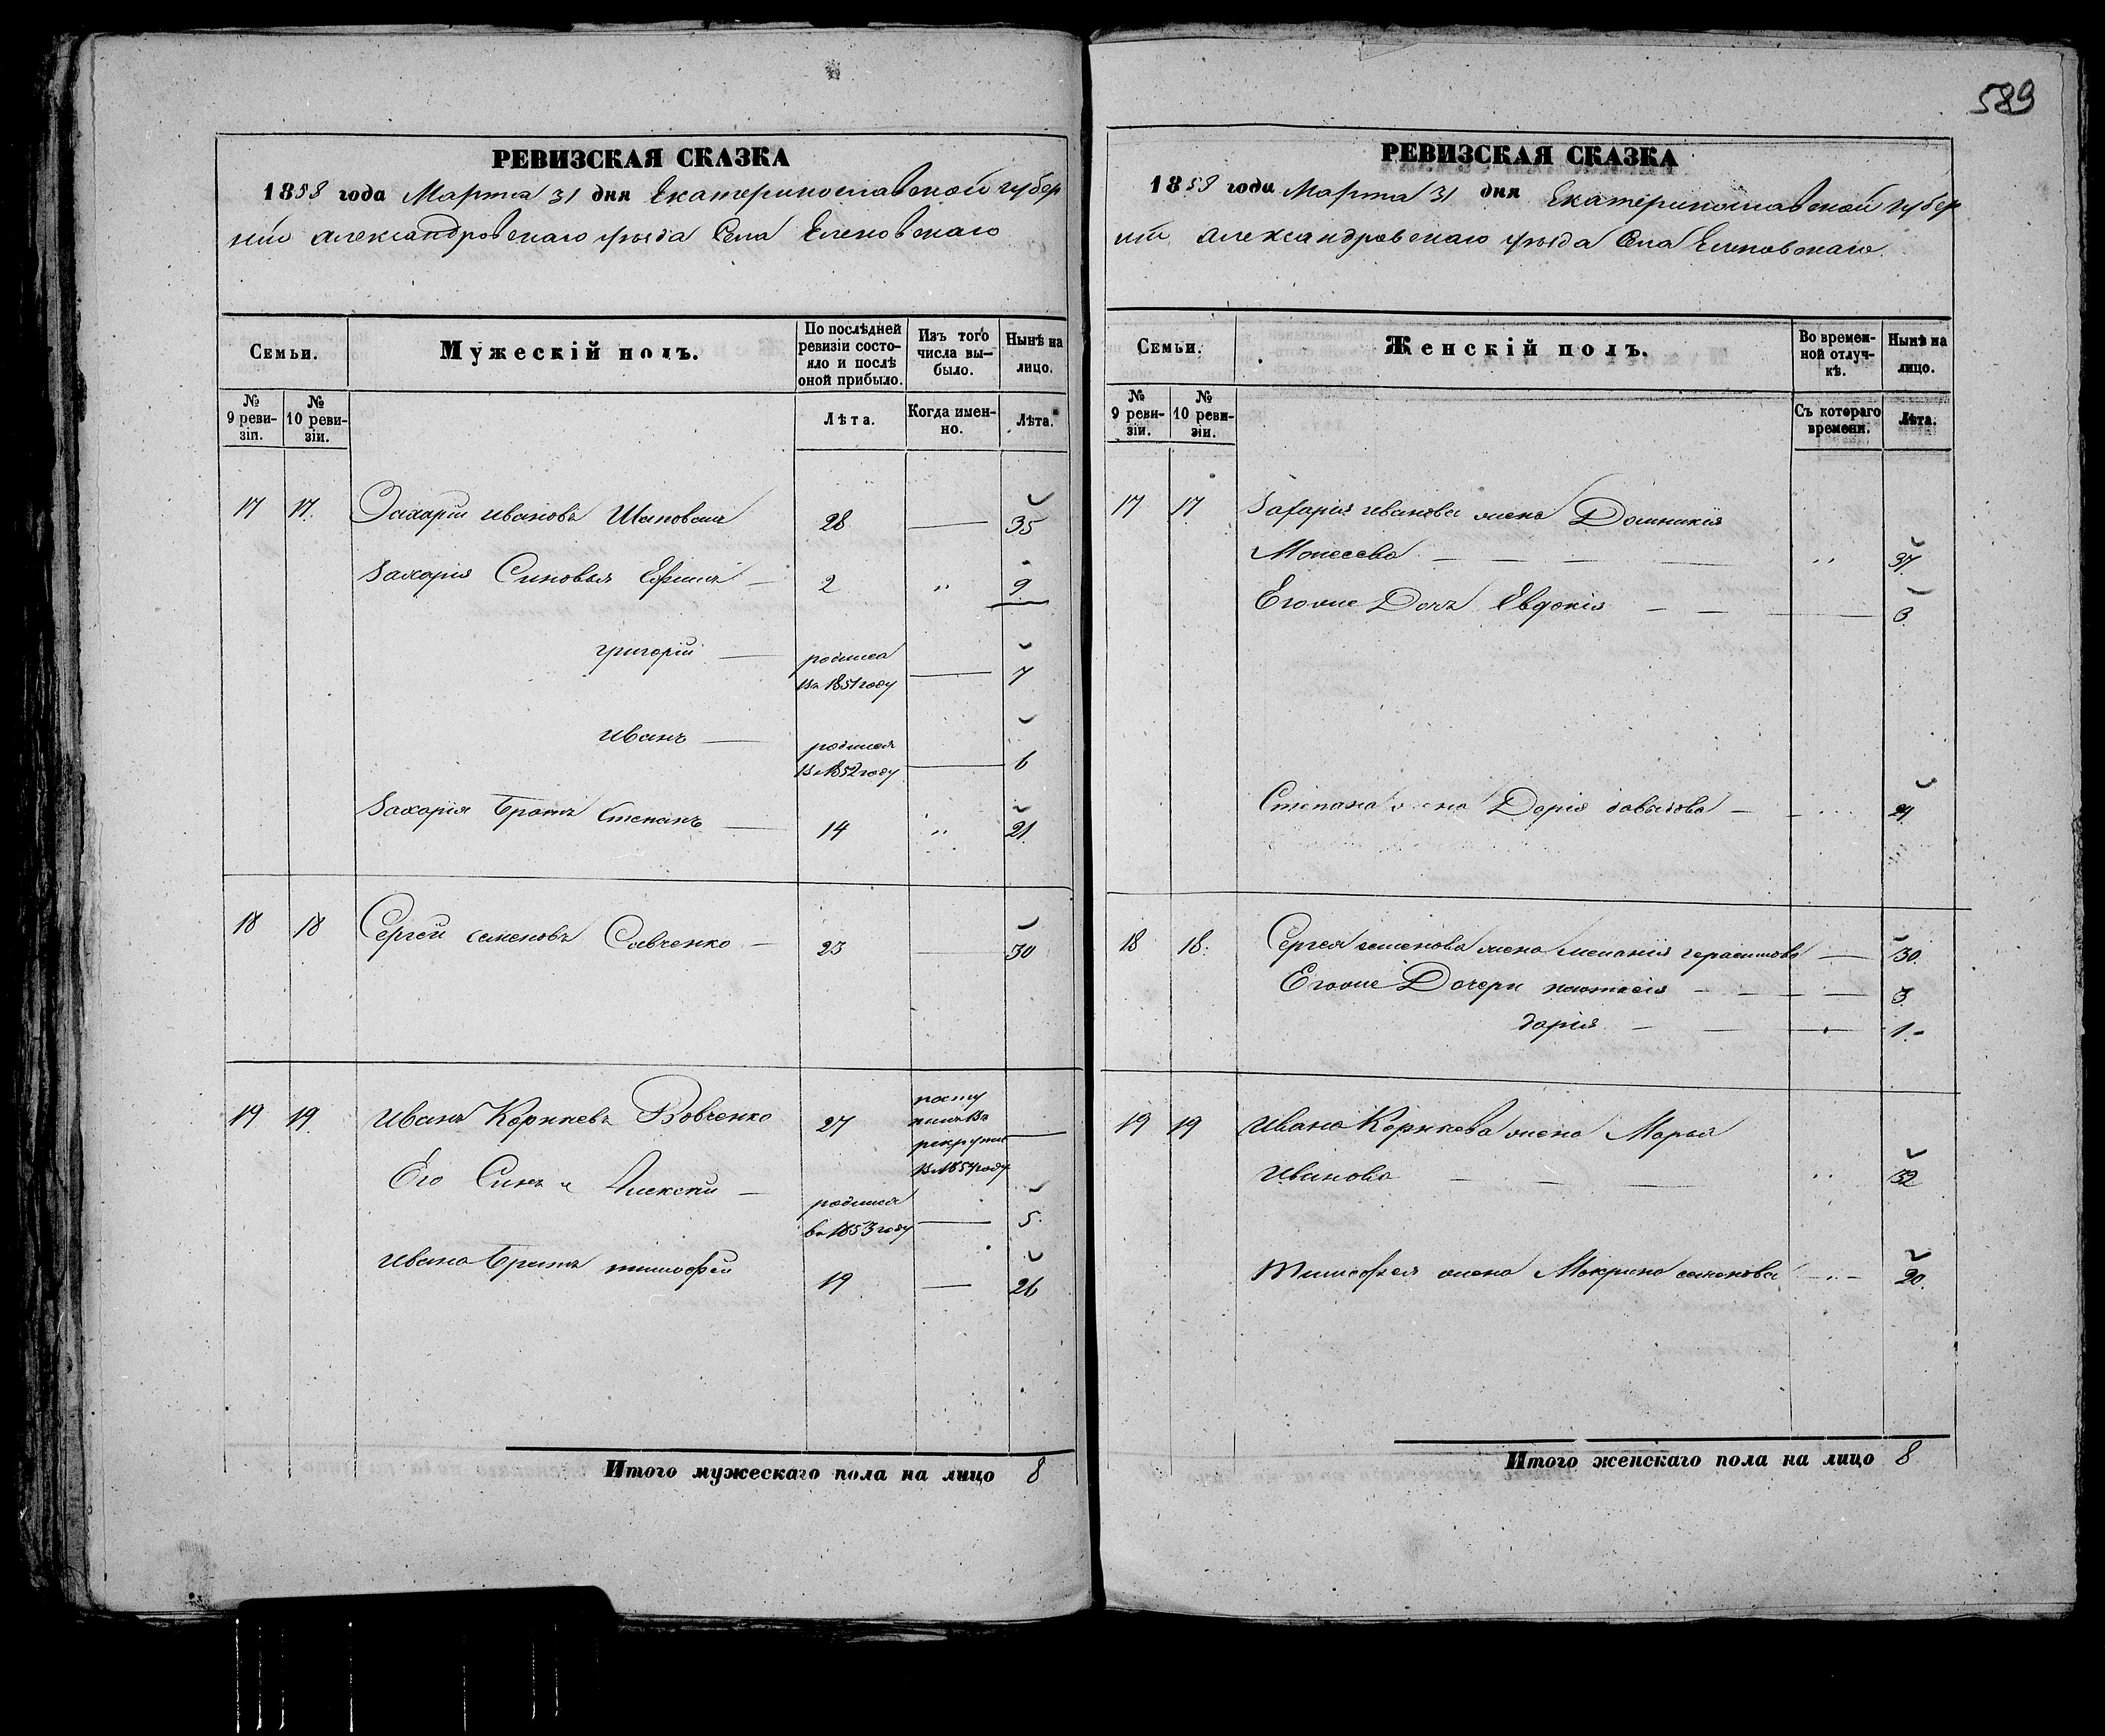 589
РЕВИЗСКАЯ СКАЗКА
1858 года Марта 31 дня Екатеринославской губер
нии Александровскаго уѣзда Села Еленовскаго
Семьи.
Мужескій полъ.
По послѣдней ревизіи состо-
яло и послѣ
оной прибыло.
Изъ того
числа вы-
было.
Нынѣ на
лицо.
№
9 реви-
зіи.
№
10 реви-
зіи.
Лѣта.
Когда имен-
но.
Лѣта.
17 17. Захарій Ивановъ Шаповалъ 28 — 35
Захарія Синовья Ефимъ — 2 „ 9
григорій — родился
въ 1851 году — 7
Иванъ — родился
въ 1852 году — 6
Захарія Братъ Степанъ — 14 „ 21
18 18 Сергей семеновъ Савченко — 23 — 30
19 19 Иванъ Корнѣевъ Вовченко 27 посту
пилъ въ
рекруты
въ 1854 году —
Его Синъ Алексѣй — родился
въ 1853 году — 5.
Ивана Братъ тимофей 19 — 26
Итого мужескаго пола на лицо 8
РЕВИЗСКАЯ СКАЗКА
1858 года Марта 31 дня Екатеринославской губер
нии Александровскаго уѣзда Села Еленовскаго.
Семьи.
Женскій полъ.
Во времен-
ной отлуч-
кѣ.
Нынѣ на
лицо.
№
9 реви-
зіи.
№
10 реви-
зіи.
Съ котораго
времени.
Лѣта.
17 17. Захарія Иванова жена Домникія
Моисеева — — — „ 37.
Егоже Дочь Евдокія — — — 3
Степана жена Дарія давыдова — 21.
18 18. Сергея семенова жена меланія герасимова — 30.
Егоже Дочери настасія — — — 3
дарія — — — 1.-
19 19 Ивана Корнѣева жена Марья
Иванова — — — „ 32
Тимофея жена Макрина семенова — „ — 20.
Итого женскаго пола на лицо 8